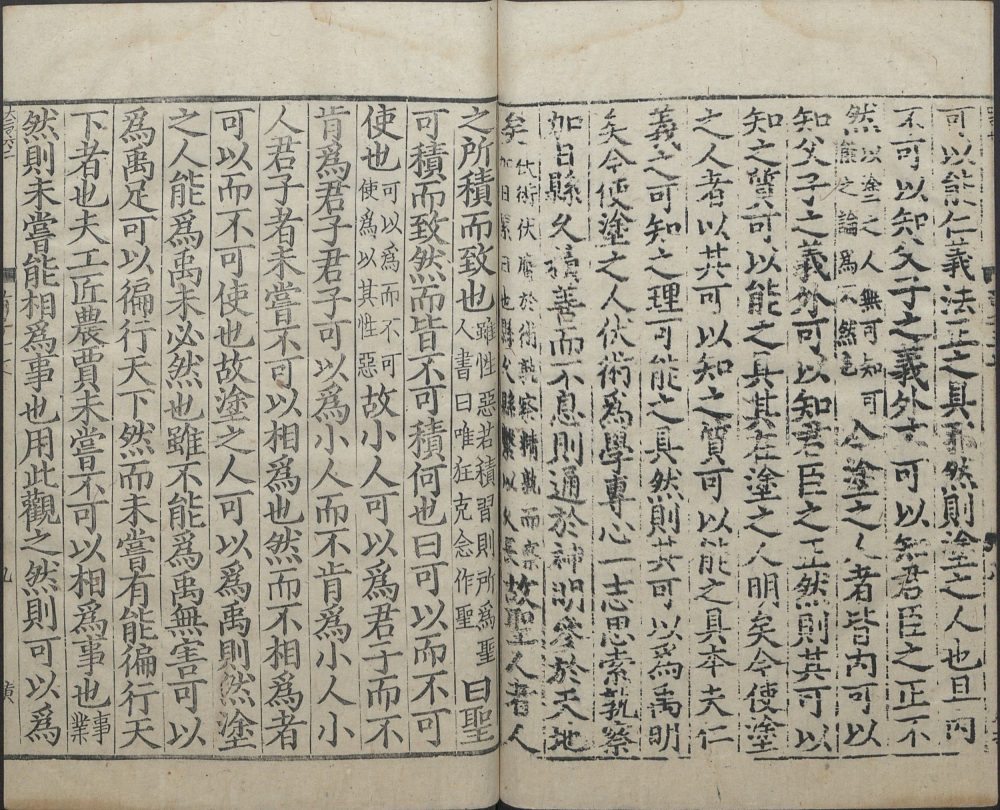 可以能仁義法正之具邪然則塗之人也且內
不可以知父子之義外不可以知君臣之正不
然以塗之人無可知可能之論為不然也今塗之人者皆內可以
知父子之義外可以知君臣之正然則其可以
知之質可以能之具其在塗之人明矣今使塗
之人者以其可以知之質可以能之具本夫仁
義之可知之理可能之具然則其可以為禹明
矣今使塗之人伏術為學專心一志思索孰察
加日縣久積善而不息則通於神明參於天地
矣伏術伏膺於術孰察精孰而察加日累日也縣久縣繫以久長故聖人者人
之所積而致也雖性惡若積習則所為聖人書曰唯狂克念作聖曰聖
可積而致然而皆不可積何也曰可以而不可
使也可以為而不可使為以其性惡故小人可以為君子而不
肯為君子君子可以為小人而不肯為小人小
人君子者未嘗不可以相為也然而不相為者
可以而不可使也故塗之人可以為禹則然塗
之人能為禹未必然也雖不能為禹無害可以
為禹足可以徧行天下然而未嘗有能徧行天
下者也夫工匠農賈未嘗不可以相為事也事業
然則未嘗能相為事也用此觀之然則可以為